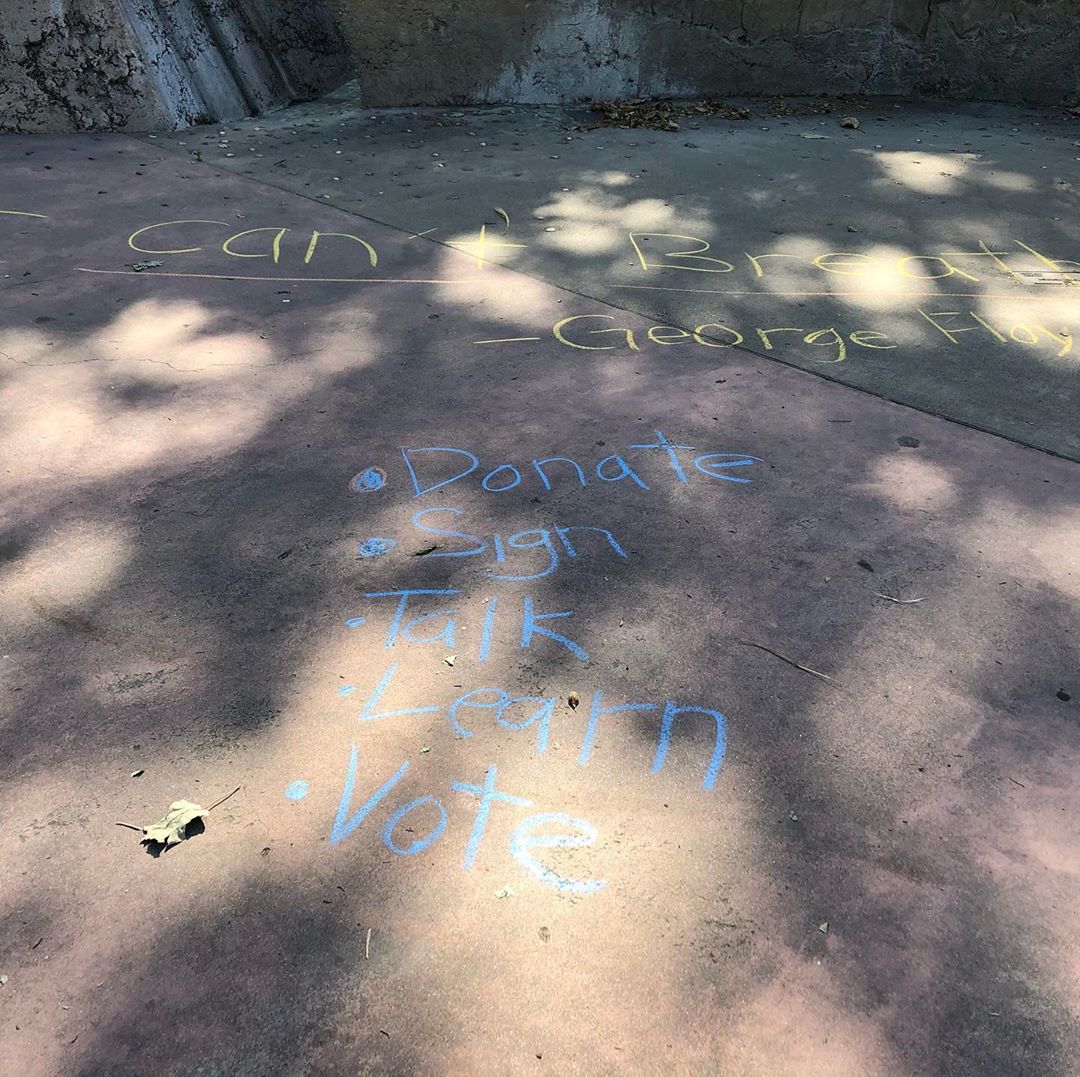 I Can't Breath
- George Floy
• Donate
• Sign
• Talk
• Learn
• Vote